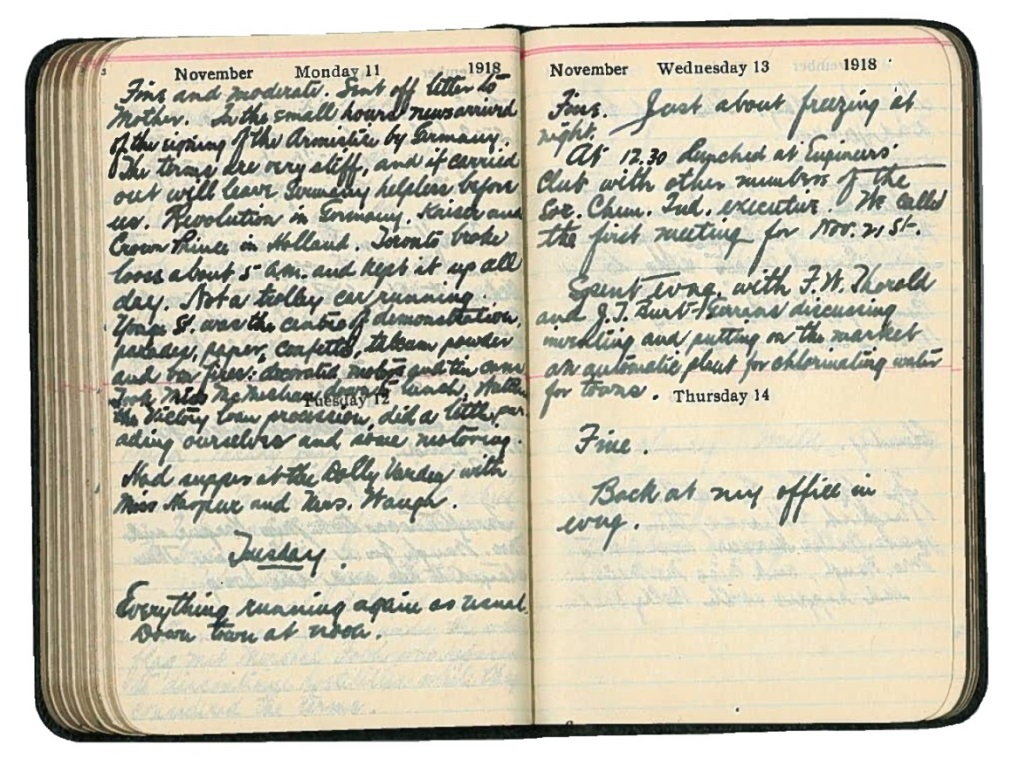 November Monday 11 1918
Fine and moderate. Sent off letter to
Mother. In the small hours news arrived
of the signing of the Armistice by Germany.
The terms are very stiff, and if carried
out will leave Germany helpless before
us. Revolution in Germany. Kaiser and
Crown Prince in Holland. Toronto broke
loose about 5 A.M. and kept it up all
day. Not a trolley car running.
Yonge St. was the centre of demonstration,
parades, paper, confetti, talcum powder
and bon fires; decorated motors and tin cans
Took Miss McMeekan down to lunch,
Tuesday 12
the Victory loan procession, did a little par-
ading ourselves and some motoring.
Had supper at the Dolly Varden with
Miss Harper and Mrs. Waugh.
Tuesday
Everything running again as usual.
Down town at noon.
November Wednesday 13 1918
Fine. Just about freezing at
night.
At 12.30 lunched at Engineers'
Club with other members of the
Soc. Chem. Ind. executive. We called
the first meeting for Nov. 21st.
Spent evng. with F.W. Thorold
and J.T. Burt-Gerrans discussing
inventing and putting on the market
an automatic plant for chlorinating water
for towns.
Thursday 14
Fine.
Back at my office in
evng.